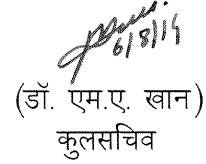 6/8/19
(डॉ. एम.ए. खान)
कुलसचिव